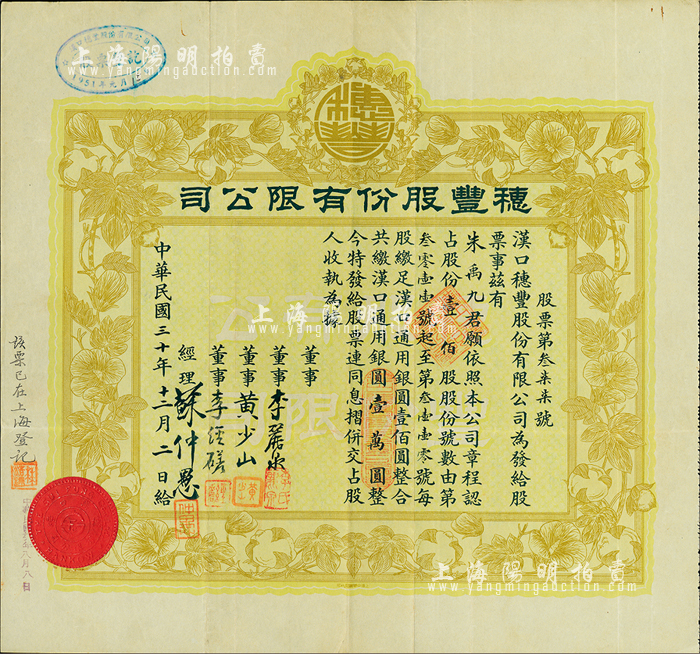 穗豐股份有限公司
股票第叁柒柒號
漢口穗豐股份有限公司為發給股
票事茲有
朱禹九君願依照本公司章程認
占股份壹佰股股份號數由第
叁零壹壹號起至第叁壹壹零號每
股繳足漢口通用銀圓壹佰圓整合
共繳漢口通用銀圓壹萬圓整
今特發給股票連同息摺併交占股
人收執為據
董事
董事李麗泉
董事黃少山
董事李經磋
經理蘇仲愚
中華民國三十年十二月二日給
該票已在上海登記
1951年元月
上海陽明拍賣
www.yangmingauction.com
上海陽明拍賣
www.yangmingauction.com
上海陽明拍賣
www.yangmingauction.com